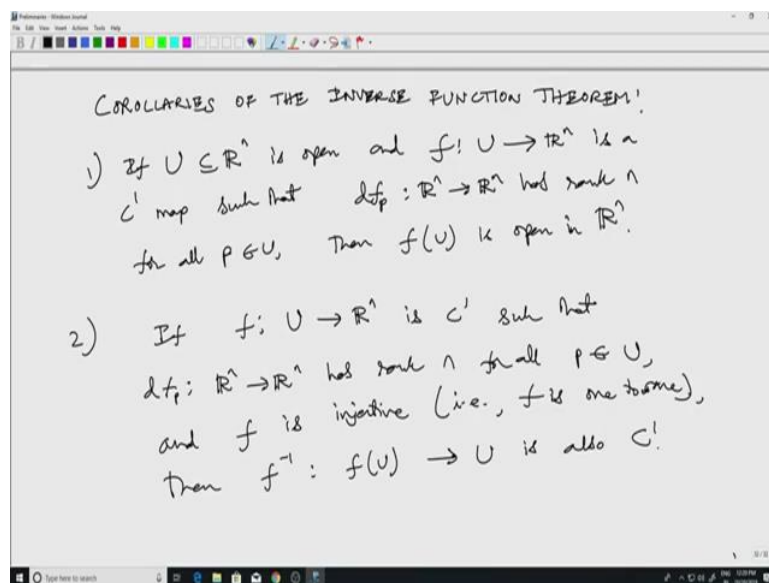 Preliminaries - Windows Journal
File Edit View Insert Actions Tools Help
COROLLARIES OF THE INVERSE FUNCTION THEOREM:
1) If U ⊆ ℝⁿ is open and f: U → ℝⁿ is a
C¹ map such that df_p : ℝⁿ → ℝⁿ has rank n
for all p ∈ U, then f(U) is open in ℝⁿ.
2) If f: U → ℝⁿ is C¹ such that
df_p: ℝⁿ → ℝⁿ has rank n for all p ∈ U,
and f is injective (i.e., f is one to one),
then f⁻¹ : f(U) → U is also C¹.
Type here to search